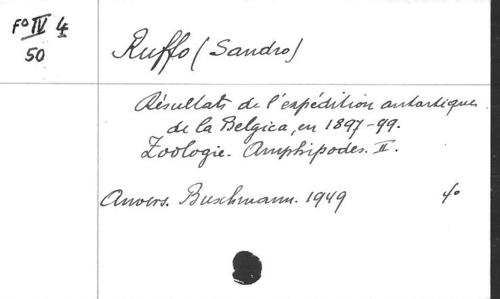 Fo IV 4
50
Ruffo (Sandro)
Résultats de l'expédition antartique
de la Belgica, en 1897-99.
Zoologie. Amphipodes. II.
Anvers. Buschmann. 1949